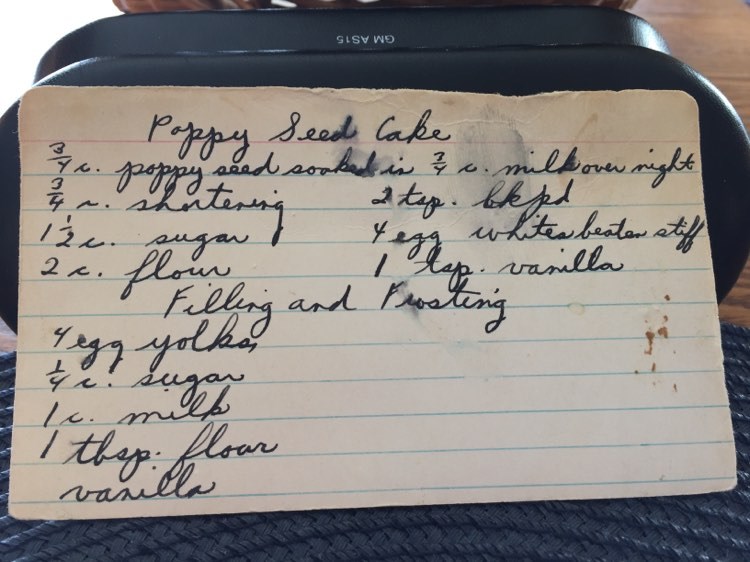 GM AS15
Poppy Seed Cake
3/4 c. poppy seed soaked in 3/4 c. milk over night
3/4 c. shortening 2 tsp. bkpd
1 1/2 c. sugar 4 egg whites beaten stiff
2 c. flour 1 tsp. vanilla
Filling and Frosting
4 egg yolks
1/4 c. sugar
1 c. milk
1 tbsp. flour
vanilla